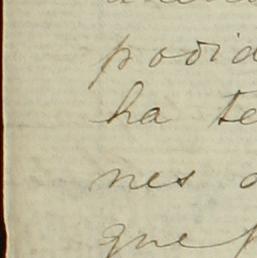 podid
ha te
nes
que